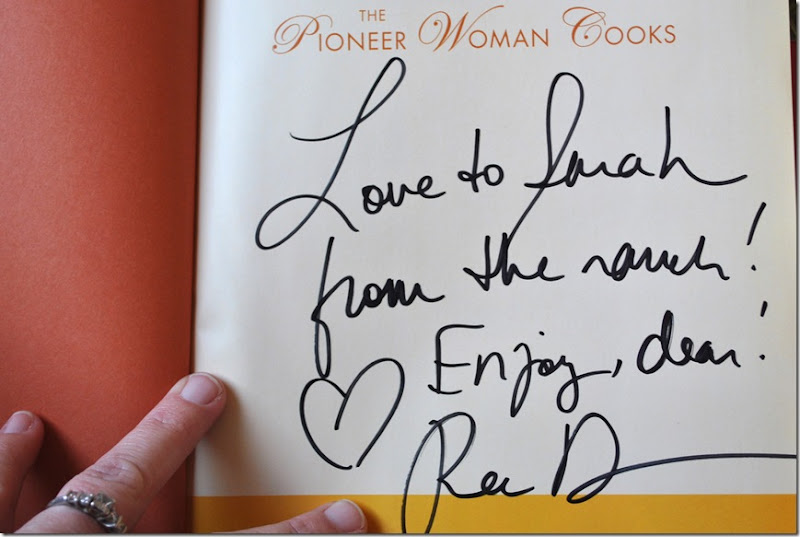 THE
PIONEER WOMAN COOKS
Love to Sarah
from the ranch!
Enjoy, dear!
Ree D